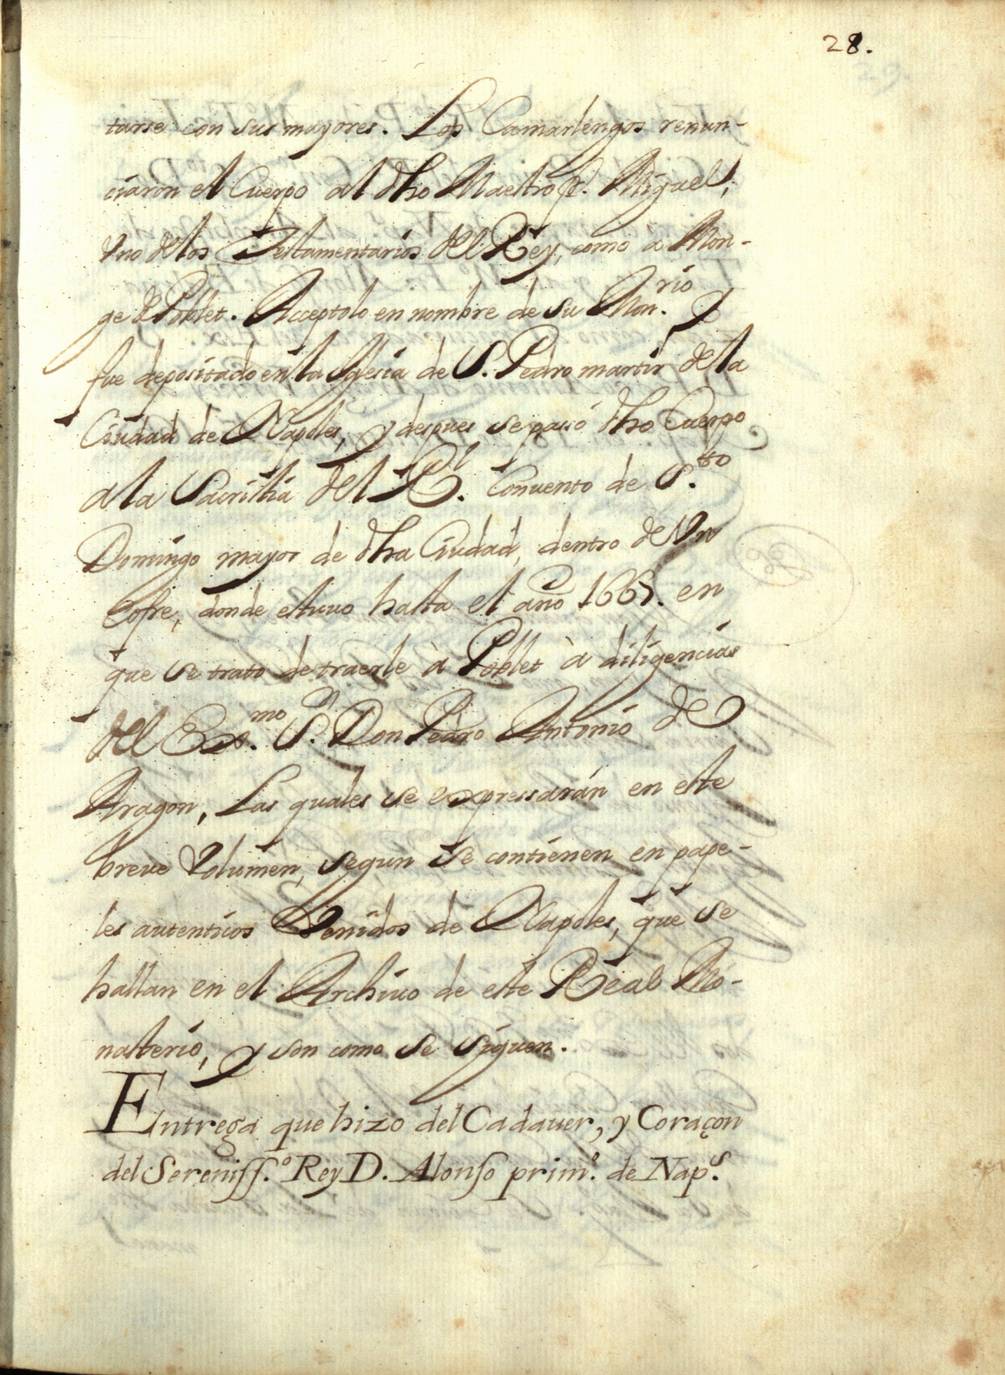 28.
tarse con sus mayores. Los Camarlengos renun-
ciaron el Cuerpo al dho Maestro f. Miguel,
Vno de los Testamentarios del Rey, como a Mon-
ge de Poblet. Acceptolo en nombre de su Mon.rio Y
fue depositado en la Iglesia de S. Pedro martir de la
Ciudad de Napoles, y despues se passó dho Cuerpo
a la Sacristia del Rl. Convento de S.to
Domingo mayor de dha Ciudad, dentro de Vn
Cofre, donde estuuo hasta el año 1667. en
que se trato de traerle à Poblet à diligencias
del Exmo. S.r Don Pedro Antonio de
Aragon, Las quales se expressarán en este
breue Volumen, segun se contienen en pape-
les autenticos Venidos de Napoles, que se
hallan en el Archiuo de este Real Mo-
nasterio, y son como se siguen.
Entrega que hizo del Cadauer, y Coraçon
del Sereniss.o Rey D. Alonso prim.o de Nap.s